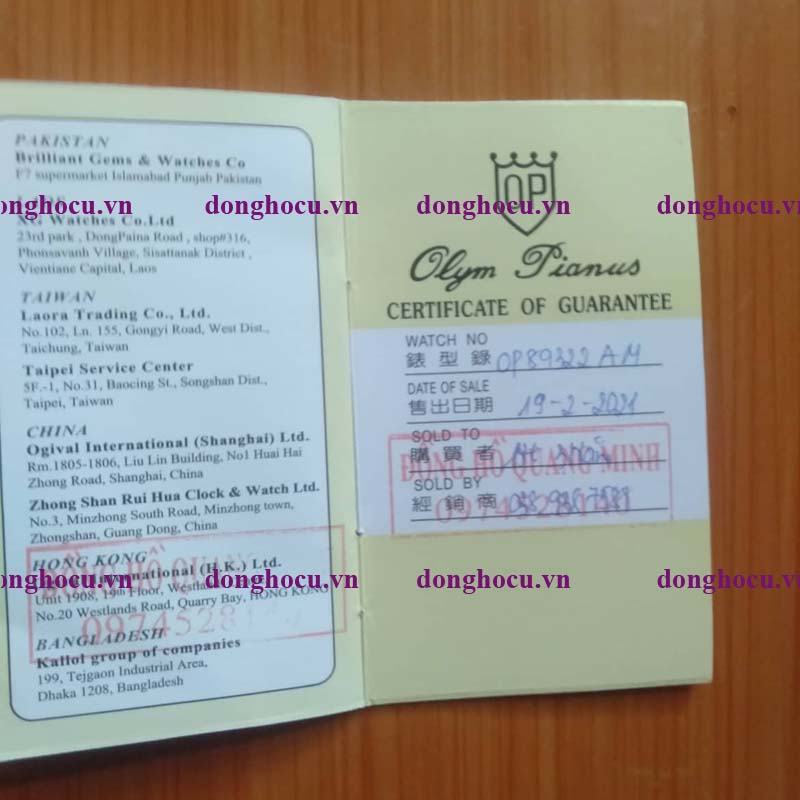 PAKISTAN
Brilliant Gems & Watches Co
F7 supermarket Islamabad Punjab Pakistan
XG Watches Co.Ltd
23rd park , DongPaina Road , shop#316,
Phonsavanh Village, Sisattanak District ,
Vientiane Capital, Laos
TAIWAN
Laora Trading Co., Ltd.
No.102, Ln. 155, Gongyi Road, West Dist.,
Taichung, Taiwan
Taipei Service Center
5F.-1, No.31, Baocing St., Songshan Dist.,
Taipei, Taiwan
CHINA
Ogival International (Shanghai) Ltd.
Rm.1805-1806, Liu Lin Building, No1 Huai Hai
Zhong Road, Shanghai, China
Zhong Shan Rui Hua Clock & Watch Ltd.
No.3, Minzhong South Road, Minzhong town,
Zhongshan, Guang Dong, China
HONG KONG
International (H.K.) Ltd.
Unit 1908, 19th Floor, Westlands
No.20 Westlands Road, Quarry Bay, HONG KONG
BANGLADESH
Kallol group of companies
199, Tejgaon Industrial Area,
Dhaka 1208, Bangladesh
ĐỒNG HỒ QUANG
OP
Olym Pianus
CERTIFICATE OF GUARANTEE
WATCH NO
錶型錄 OP89322AM
DATE OF SALE
售出日期 19-2-2021
SOLD TO
購買者
SOLD BY
經銷商
ĐỒNG HỒ QUANG MINH
donghocu.vn donghocu.vn donghocu.vn donghocu.vn
donghocu.vn donghocu.vn donghocu.vn donghocu.vn